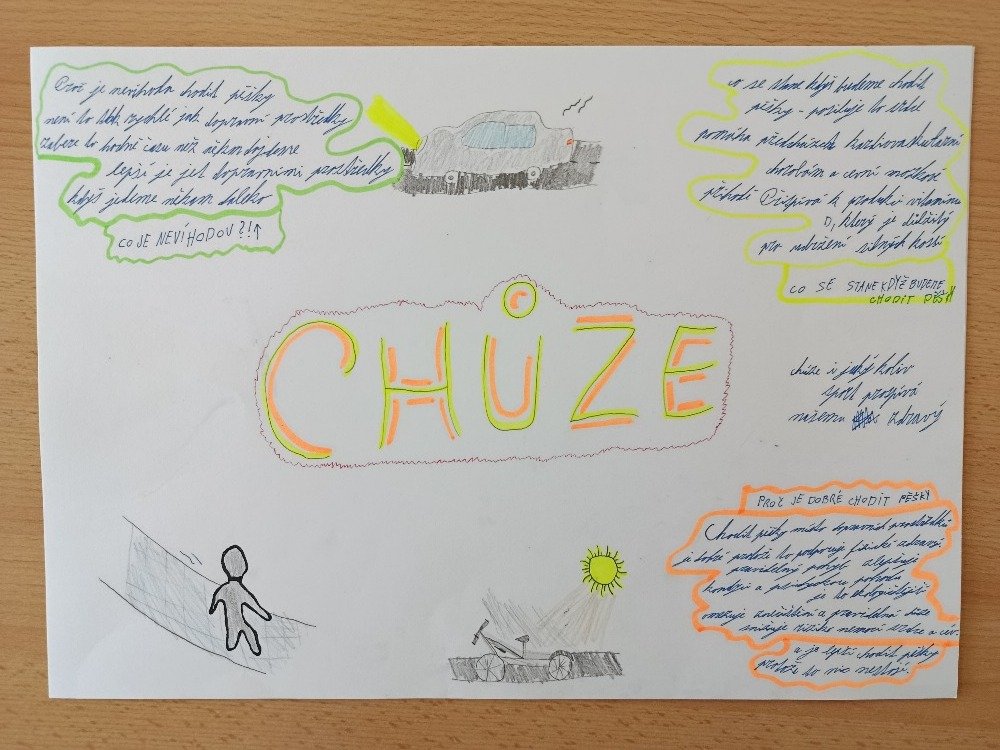 Proč je nevíhoda chodit pěšky
není to tak rychlé jak dopravní prostředky
zabere to hodně času než někam dojdeme
lepší je jet dopravními prostředky
když jedeme někam daleko
CO JE NEVÍHODOU?!↑
co se stane když budeme chodit
pěšky - posiluje to srdce
pomáhá předcházet kardiovaskulární
chorobám a cevní mozkové
příhodě Přispívá k produkci vitamínu
D, který je důležitý
pro udržení silných kostí
CO SE STANE KDYŽ BUDEME
CHODIT PĚŠKY
CHŮZE
chůze i jaký koliv
sport prospívá
našemu zdravý
PROČ JE DOBRÉ CHODIT PĚŠKY
Chodit pěšky místo dopravních prostředků
je dobré protože to podporuje fyzické zdraví
pravidelný pohyb zlepšuje
kondici a psychickou pohodu
je to ekologičtější
omezuje znečištění a pravidelná chůze
snižuje riziko nemocí srdce a cév
a je lepší chodit pěšky
protože to nic nestojí.